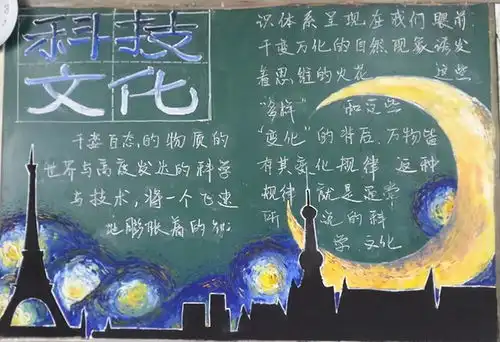 科技
文化
千姿百态的物质的
世界与高度发达的科学
与技术,将一个飞速
膨胀着的知
识体系呈现在我们眼前.
千变万化的自然现象诱发
着思维的火花 这些
“多样” 和这些
“变化”的背后.万物皆
有其变化规律 这种
规律 就是通常
所 说的科
学.文化